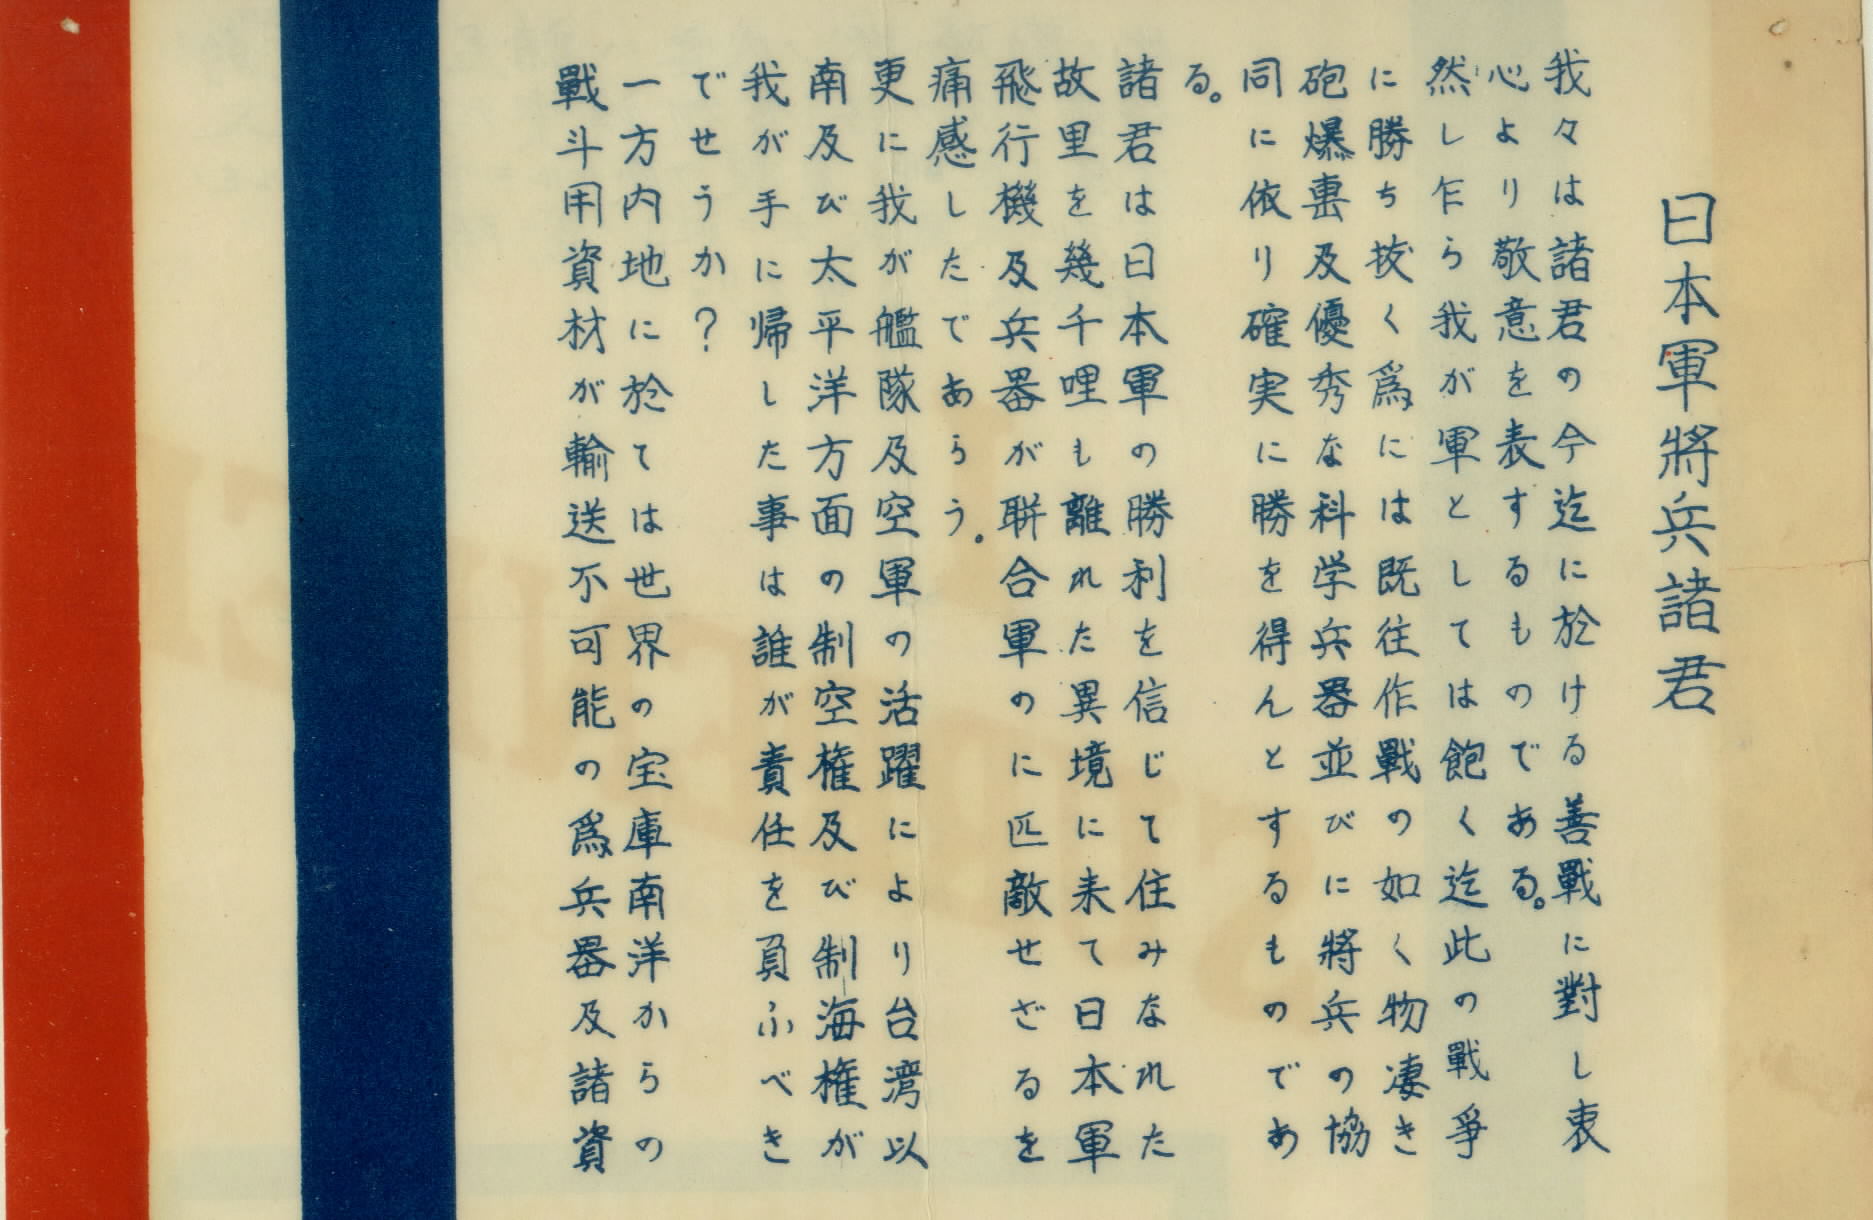 日本軍將兵諸君
我々は諸君の今迄に於ける善戰に對し衷
心より敬意を表するものである。
然し乍ら我が軍としては飽く迄此の戰爭
に勝ち抜く爲には既往作戰の如く物凄き
砲爆撃及優秀な科学兵器並びに將兵の協
同に依り確実に勝を得んとするものであ
る。
諸君は日本軍の勝利を信じて住みなれた
故里を幾千哩も離れた異境に来て日本軍
飛行機及兵器が聯合軍のに匹敵せざるを
痛感したであらう。
更に我が艦隊及空軍の活躍により台湾以
南及び太平洋方面の制空権及び制海権が
我が手に帰した事は誰が責任を負ふべき
でせうか？
一方内地に於ては世界の宝庫南洋からの
戰斗用資材が輸送不可能の爲兵器及諸資